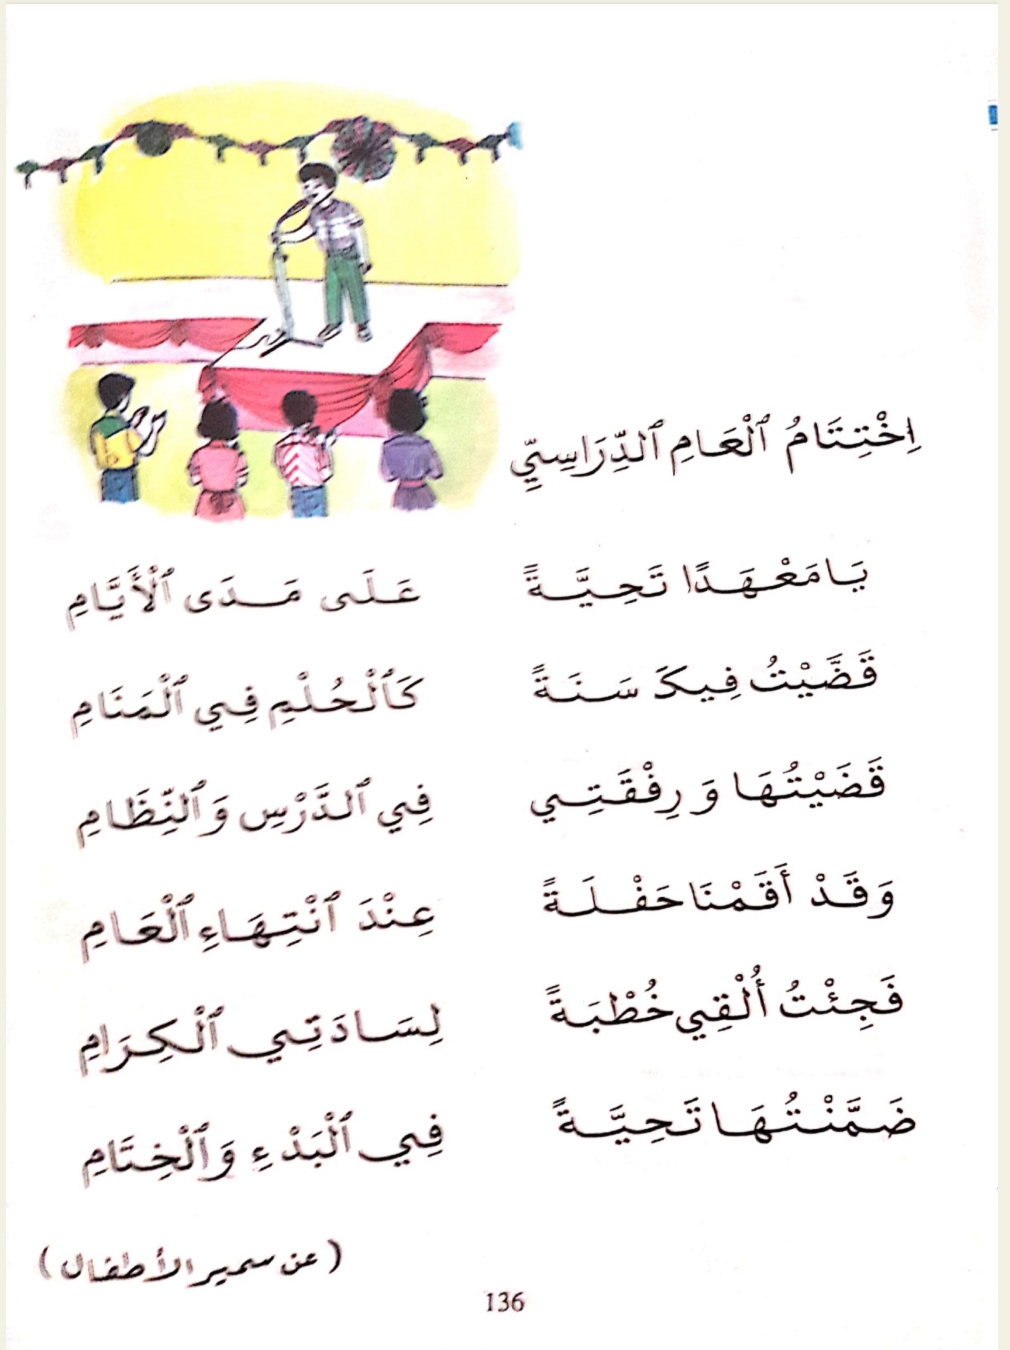 اِخْتِتَامُ ٱلْعَامِ ٱلدِّرَاسِيِّ
يَا مَعْهَدًا تَحِيَّةً عَلَى مَدَى ٱلْأَيَّامِ
قَضَّيْتُ فِيكَ سَنَةً كَٱلْحُلْمِ فِي ٱلْمَنَامِ
قَضَيْتُهَا وَ رِفْقَتِي فِي ٱلدَّرْسِ وَ ٱلنِّظَامِ
وَ قَدْ أَقَمْنَا حَفْلَةً عِنْدَ ٱنْتِهَاءِ ٱلْعَامِ
فَجِئْتُ أُلْقِي خُطْبَةً لِسَادَتِي ٱلْكِرَامِ
ضَمَّنْتُهَا تَحِيَّةً فِي ٱلْبَدْءِ وَ ٱلْخِتَامِ
( عن سمير الأطفال )
136